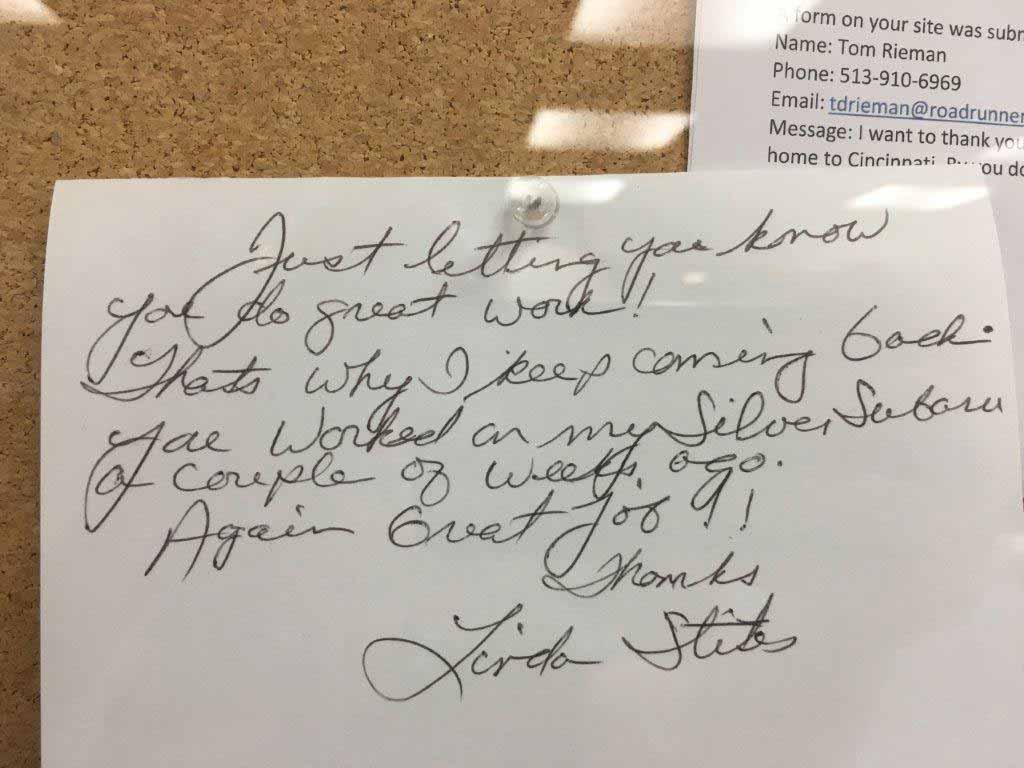 A form on your site was subm
Name: Tom Rieman
Phone: 513-910-6969
Email: tdrieman@roadrunner
Message: I want to thank you
home to Cincinnati. By you do
Just letting you know
you do great work!!
Thats why I keep coming back.
you worked on my Silver Subaru
a couple of weeks ago.
Again Great job!!
Thanks
Linda Stites